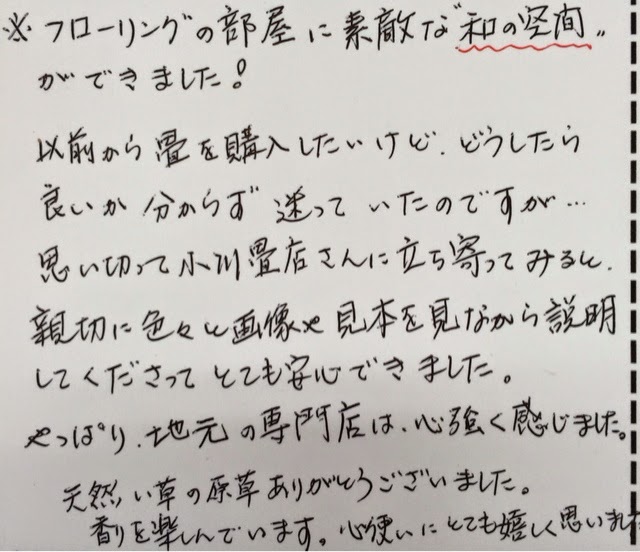 ※ フローリングの部屋に素敵な“和の空間”
ができました!
以前から畳を購入したいけど、どうしたら
良いか分からず迷っていたのですが…
思い切って小川畳店さんに立ち寄ってみると、
親切に色々と画像や見本を見ながら説明
してくださってとても安心できました。
やっぱり、地元の専門店は、心強く感じました。
天然い草の原草ありがとうございました。
香りを楽しんでいます。心使いにとても嬉しく思いまし